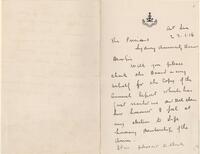 At Sea
23.1.16
The President
Sydney University Union
Dear Sir
Will you please
thank the Board on my
behalf for the copy of the
Annual Report which has
just reached me and
the honour I feel at
my election to Life
Honorary Membership of the
Union.